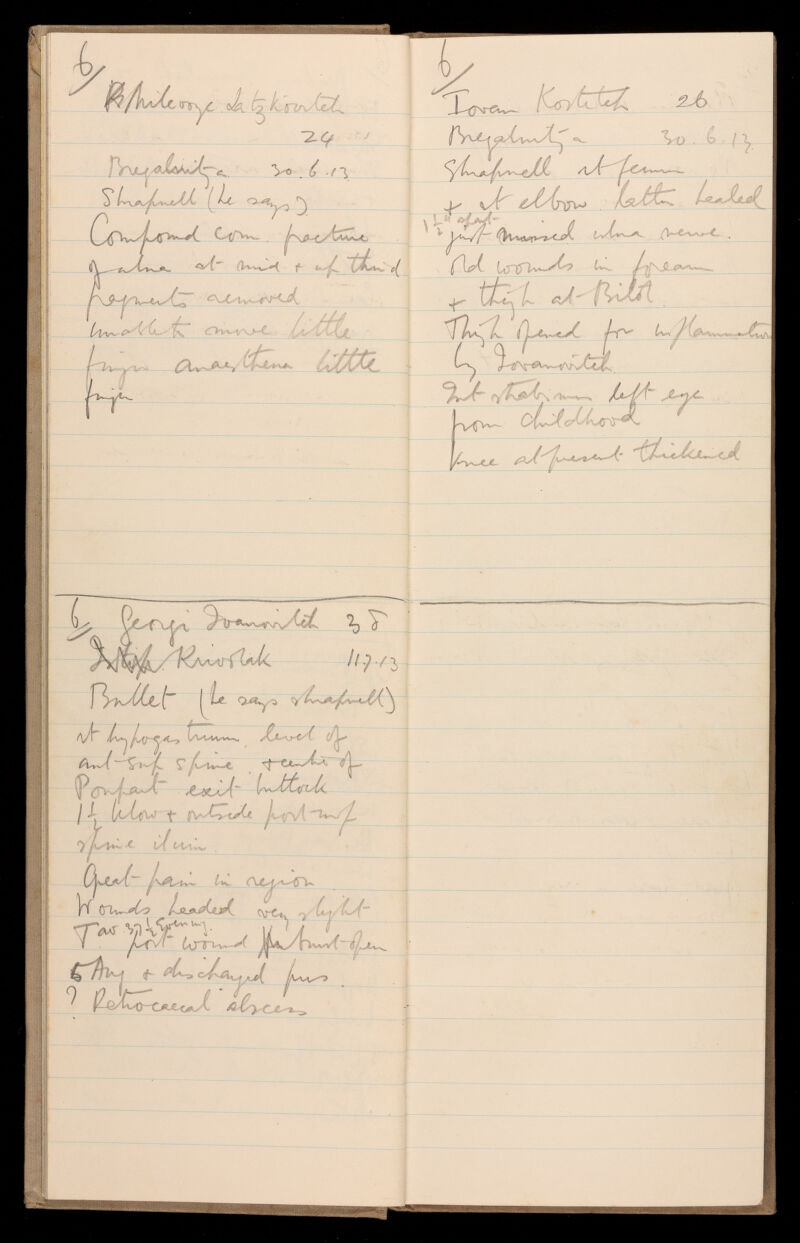 6/
Milevoye Latzkovitch
24
Bregalnitza 30.6.13
Shrapnell (he says)
Compound com. fracture
of ulna at mid + up third
fragments removed
unable to move little
finger anaesthesia little
finger
6/
Iovan Kostitch 26
Bregalnitza 30.6.13
Shrapnell rt femur
+ rt elbow latter healed
1½" apart
just missed ulna nerve.
old wounds in forearm
+ thigh at Bitol.
Thigh opened for inflammation
by Iovanovitch
Int strabismus left eye
from childhood
Knee at present thickened
6/ Georgi Ivanovitch 38
Krivolak 11.7.13
Bullet (he says shrapnell)
rt hypogastrium level of
ant sup spine + centre of
Poupart exit buttock
1½ below + outside post inf
spine ilium.
Great pain in region
Wounds headed very slight
T. av 37½ Evening.
post wound burst open
5 Aug + discharged pus.
? Retrocaecal abscess